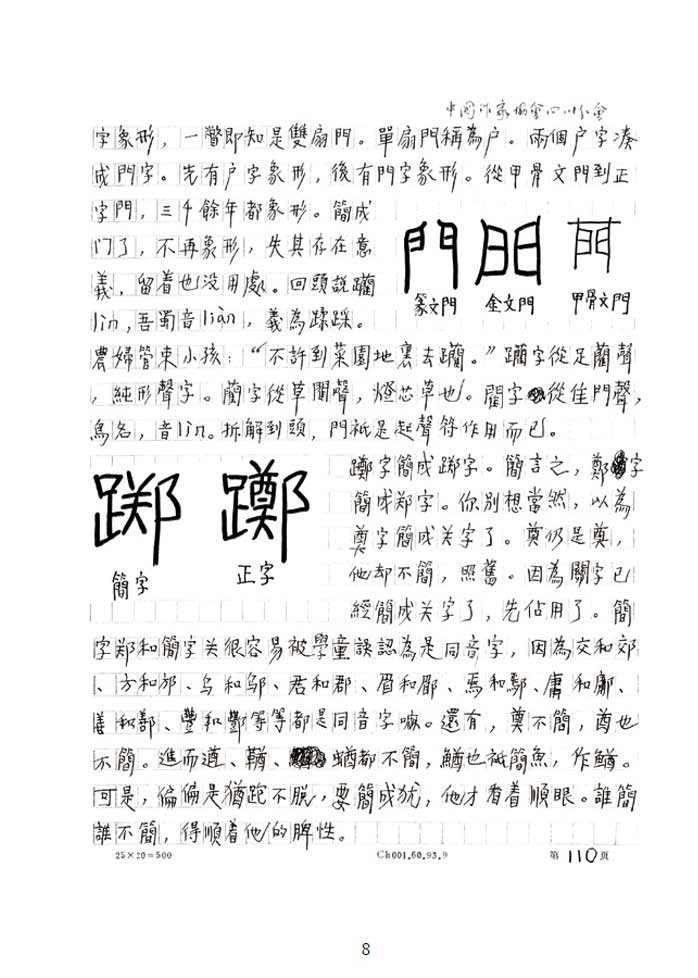 中国作家协会四川分会
字象形，一瞥即知是雙扇門。單扇門稱為户。兩個户字凑
成門字。先有户字象形，後有門字象形。從甲骨文門到正
字門，三千餘年都象形。簡成
门了，不再象形，失其存在意
義，留着也没用處。回頭説躪
lìn，吾蜀音liàn，義為蹂踩。
門 門 門
篆文門 金文門 甲骨文門
農婦管束小孩：“不許到菜園地裏去躪。”躪字從足藺聲
，純形聲字。藺字從草閵聲，燈芯草也。閵字從隹門聲，
鳥名，音lìn。拆解到頭，門祇是起聲符作用而已。
踯 躑
簡字 正字
躑字簡成踯字。簡言之，鄭字
簡成郑字。你别想當然，以為
奠字簡成关字了。奠仍是奠，
他却不簡，照舊。因為關字已
經簡成关字了，先佔用了。簡
字郑和簡字关很容易被學童誤認為是同音字，因為交和郊
、方和邡、乌和邬、君和郡、眉和郿、焉和鄢、庸和鄘、
善和鄯、豐和酆等等都是同音字嘛。還有，奠不簡，酋也
不簡。進而遒、鞧、蝤都不簡，鰌也衹簡魚，作鳅。
可是，偏偏是猶跑不脱，要簡成犹，他才看着順眼。誰簡
誰不簡，得順着他的脾性。
25×20=500
Ch001.60.93.9
第110页
8